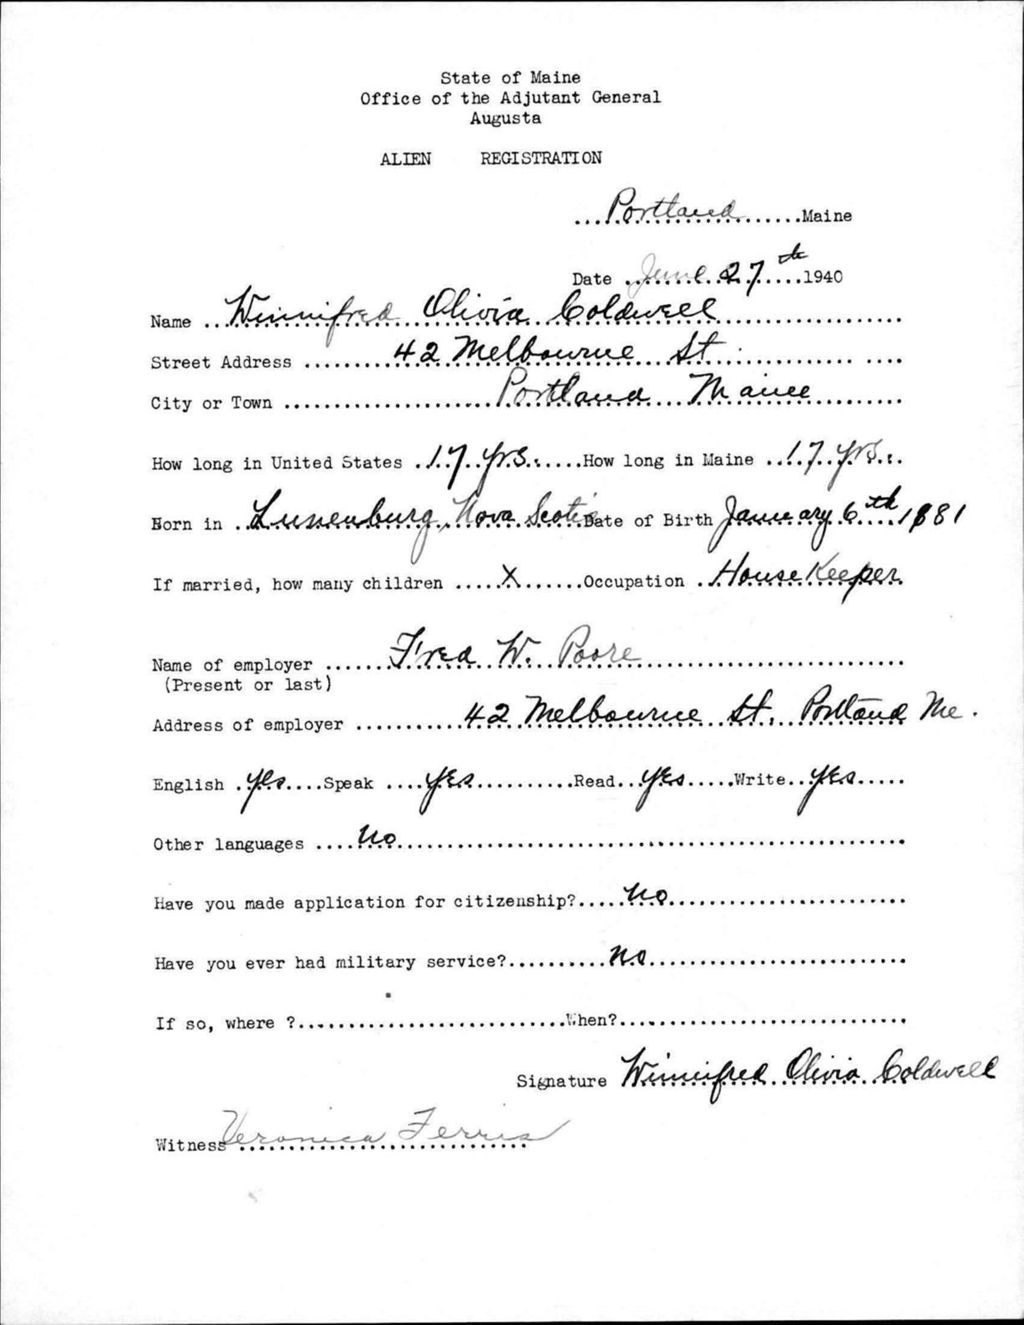 State of Maine
Office of the Adjutant General
Augusta
ALIEN REGISTRATION
...Portland.......Maine
Date ..June 27th....1940
Name ..Winnifred Olivia Coldwell..................
Street Address .........42 Melbourne St..................
City or Town ....................Portland Maine.........
How long in United States .17 yrs......How long in Maine ..17 yrs..
Born in ..Lunenburg, Nova Scotia Date of Birth January 6th 1881
If married, how many children .....X.......Occupation ..House Keeper.
Name of employer ......Fred W. Poore..........................
(Present or last)
Address of employer ..........42 Melbourne St. Portland Me.
English .yes....Speak ....yes..........Read..yes.....Write..yes.....
Other languages ....no.............................................
Have you made application for citizenship?.....no........................
Have you ever had military service?..........no..........................
If so, where ?...........................When?............................
Signature Winnifred Olivia Coldwell
Witness Veronica Ferris